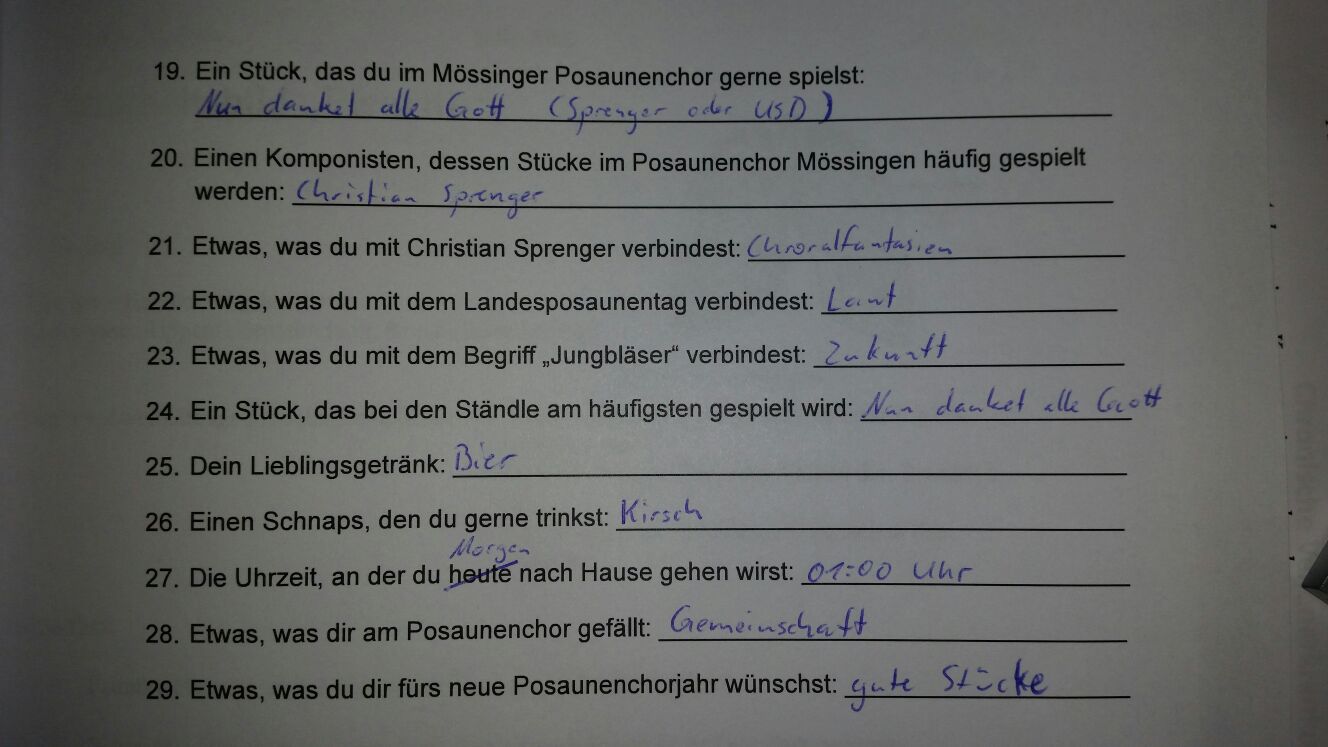 19. Ein Stück, das du im Mössinger Posaunenchor gerne spielst:
Nun danket alle Gott (Sprenger oder USD)
20. Einen Komponisten, dessen Stücke im Posaunenchor Mössingen häufig gespielt
werden: Christian Sprenger
21. Etwas, was du mit Christian Sprenger verbindest: Chroralfantasien
22. Etwas, was du mit dem Landesposaunentag verbindest: Laut
23. Etwas, was du mit dem Begriff „Jungbläser“ verbindest: Zukunft
24. Ein Stück, das bei den Ständle am häufigsten gespielt wird: Nun danket alle Gott
25. Dein Lieblingsgetränk: Bier
26. Einen Schnaps, den du gerne trinkst: Kirsch
Morgen
27. Die Uhrzeit, an der du heute nach Hause gehen wirst: 01:00 Uhr
28. Etwas, was dir am Posaunenchor gefällt: Gemeinschaft
29. Etwas, was du dir fürs neue Posaunenchorjahr wünschst: gute Stücke